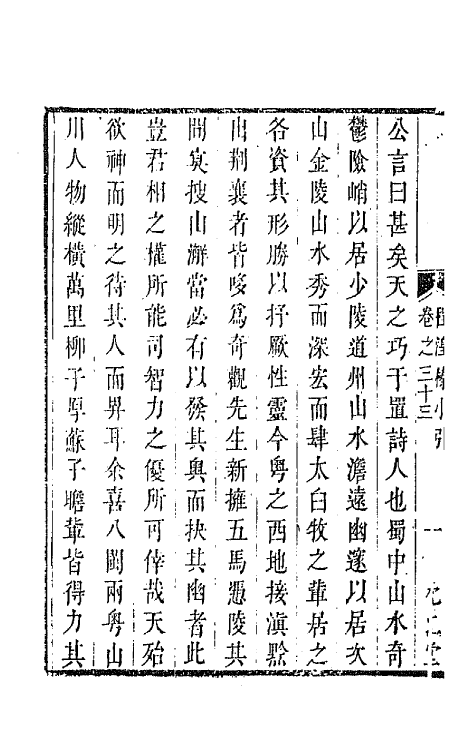 卷之三十三
小引
一
公言曰甚矣天之巧于置詩人也蜀中山水奇
鬱險峭以居少陵道州山水澹遠幽邃以居次
山金陵山水秀而深宏而肆太白牧之輩居之
各資其形勝以抒厥性靈今粵之西地接滇黔
出荆襄者皆唆爲奇觀先生新擁五馬憑陵其
間冥搜山澥當必有以發其奥而抉其幽者此
豈君相之權所能司智力之優所可倖哉天殆
欲神而明之待其人而畀耳余喜八閩兩粵山
川人物縱橫萬里柳子厚蘇子瞻輩皆得力其